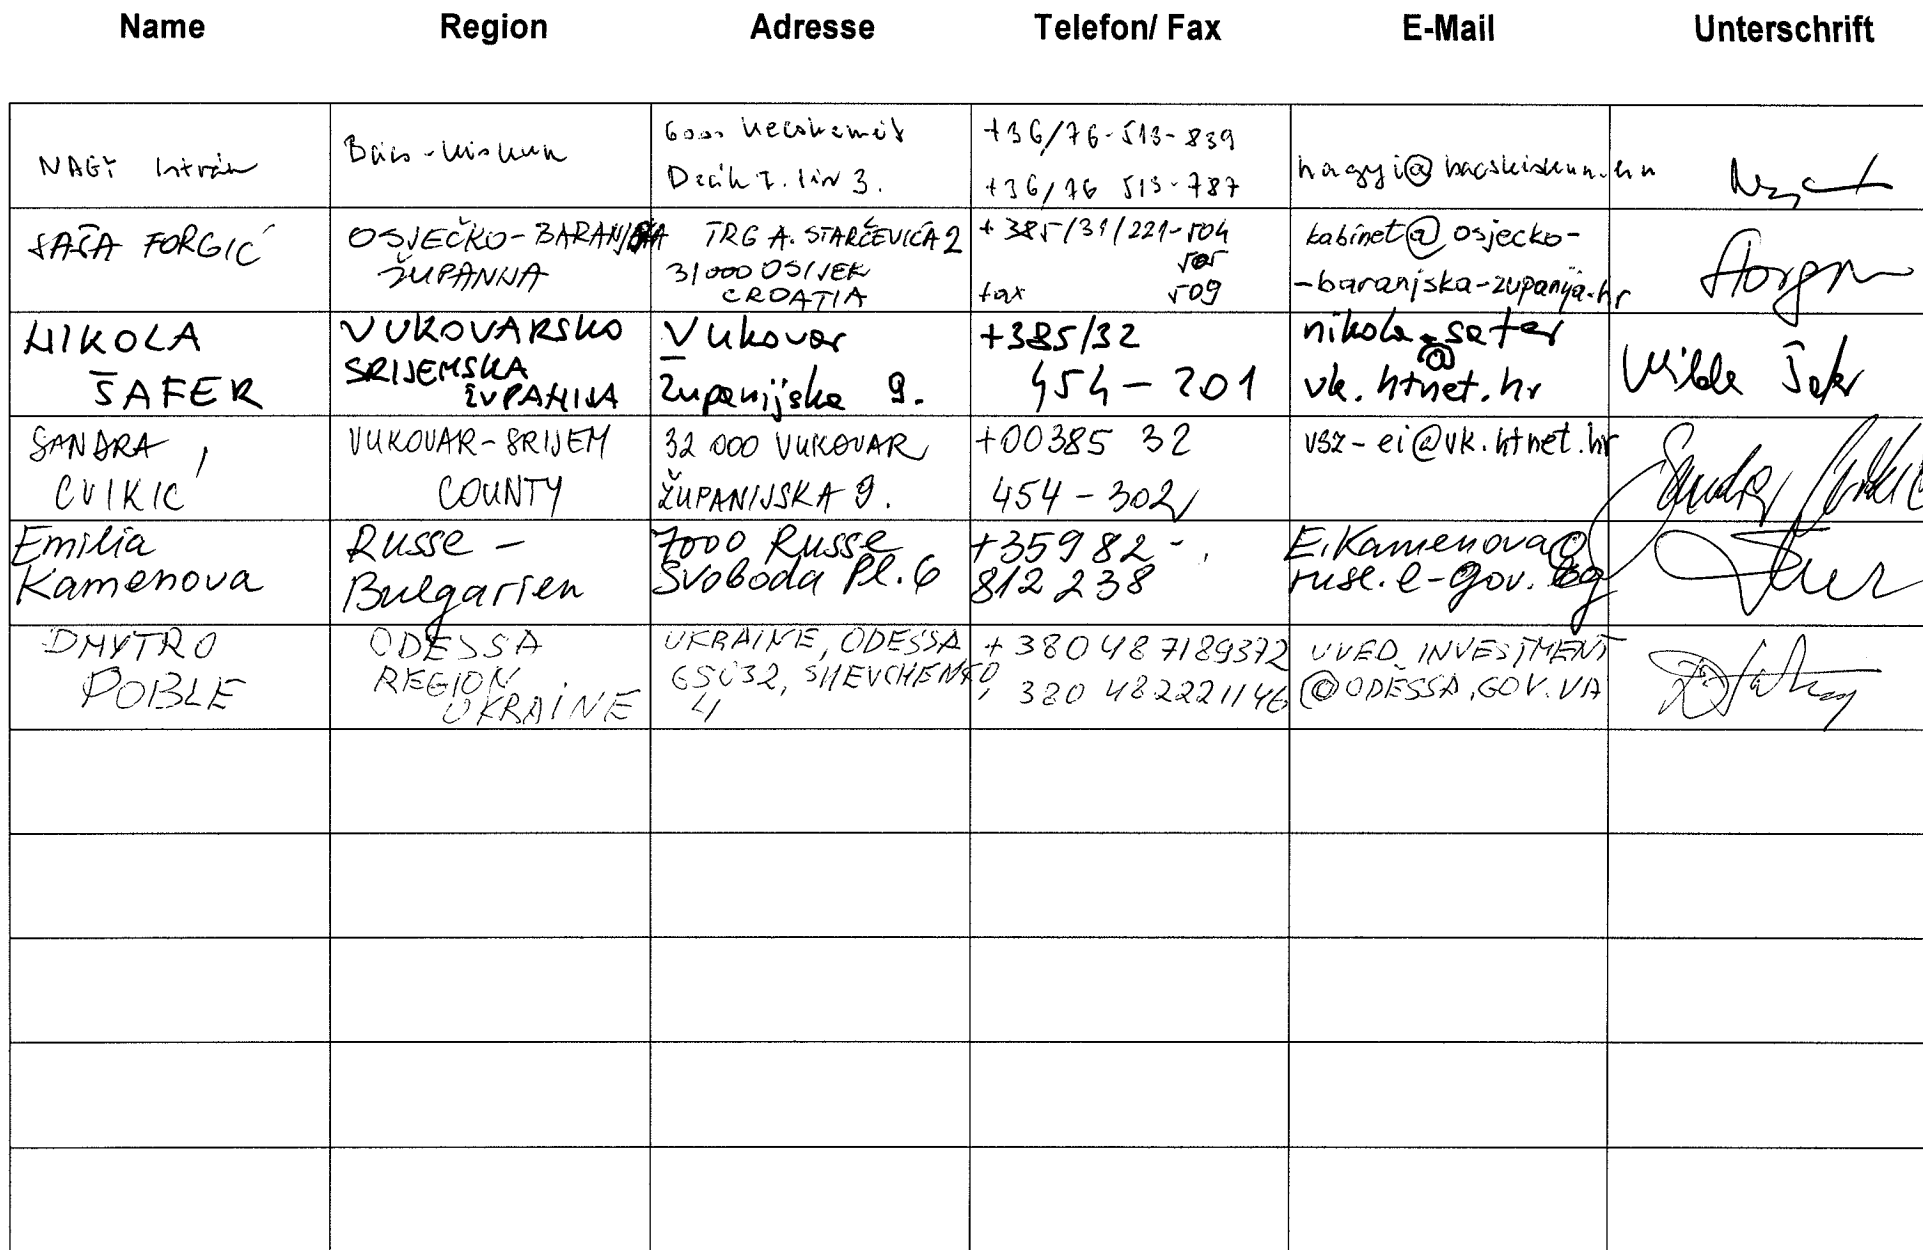 Name Region Adresse Telefon/ Fax E-Mail Unterschrift
NAGY István
Bács-Kiskun
6000 Kecskemét
Deák F. tér 3.
+36/76-513-839
+36/76 513-787
nagyi@bacskiskun.hu
SAŠA FORGIĆ
OSJEČKO-BARANJSKA
ŽUPANIJA
TRG A. STARČEVIĆA 2
31000 OSIJEK
CROATIA
+385/31/221-504
505
fax 509
kabinet@osjecko-
-baranjska-zupanija.hr
NIKOLA
ŠAFER
VUKOVARSKO
SRIJEMSKA
ŽUPANIJA
Vukovar
Županijska 9.
+385/32
454-201
nikola.safer
@
vk.htnet.hr
Nikola Šafer
SANDRA
CVIKIĆ
VUKOVAR-SRIJEM
COUNTY
32 000 VUKOVAR
ŽUPANIJSKA 9.
+00385 32
454-302
vsz-ei@vk.htnet.hr
Sandra Cvikić
Emilia
Kamenova
Russe -
Bulgarien
7000 Russe
Svoboda Pl. 6
+359 82 -
812 238
E.Kamenova@
ruse.e-gov.bg
DMYTRO
POBLE
ODESSA
REGION
UKRAINE
UKRAINE, ODESSA
65032, SHEVCHENKO,
4
+380487189372
380482221146
UVED_INVESTMENT
@ODESSA.GOV.UA